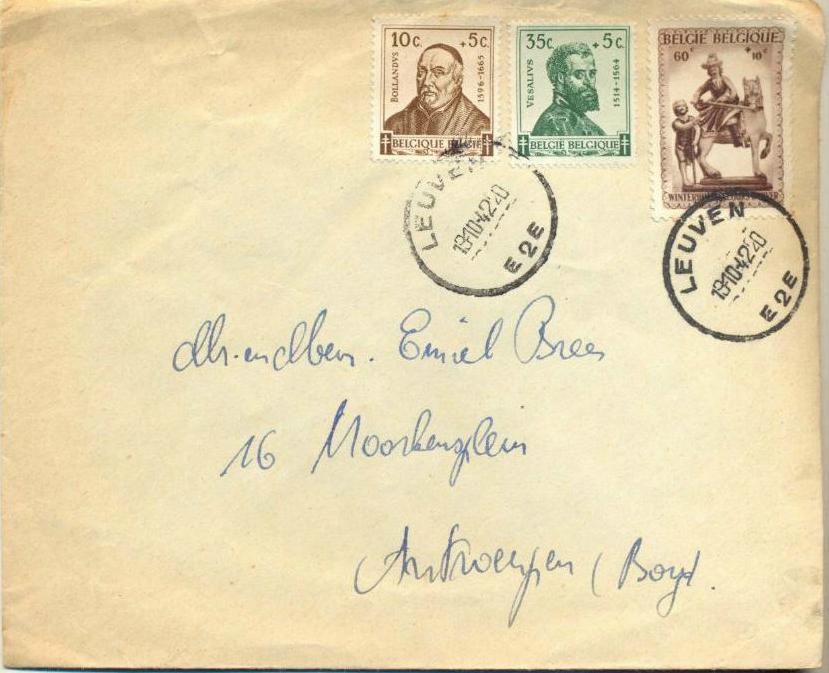 10 C. + 5 C.
BOLLANDVS
1596-1665
BELGIQUE BELGIË
35 C. + 5 C.
VESALIVS
1514-1564
BELGIË BELGIQUE
BELGIË BELGIQUE
60 c + 10 c
LEUVEN
19-10-42 20
E 2 E
LEUVEN
19-10-42 20
E 2 E
Emiel Brees
16
Antwerpen